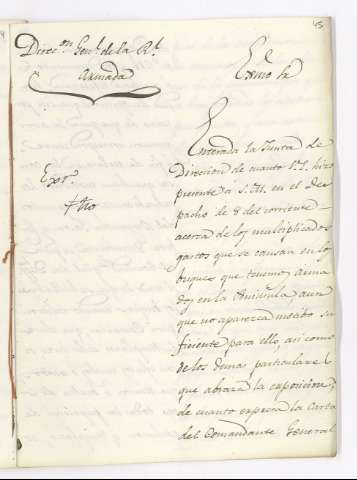 45
Direc.on Gen.l de la R.l
Armada
Exmo Sr
Enterada la Junta de
Direccion de cuanto V.E. hizo
presente a S.M. en el Des
pacho de 8 del corriente
acerca de los multiplicados
gastos que se causan en los
buques que tenemos arma
dos en la Peninsula aun
que no aparezca motibo su
ficiente para ello, asi como
de los demas particulares
que abraza la exposicion,
de cuanto expresa la Carta
del Comandante General